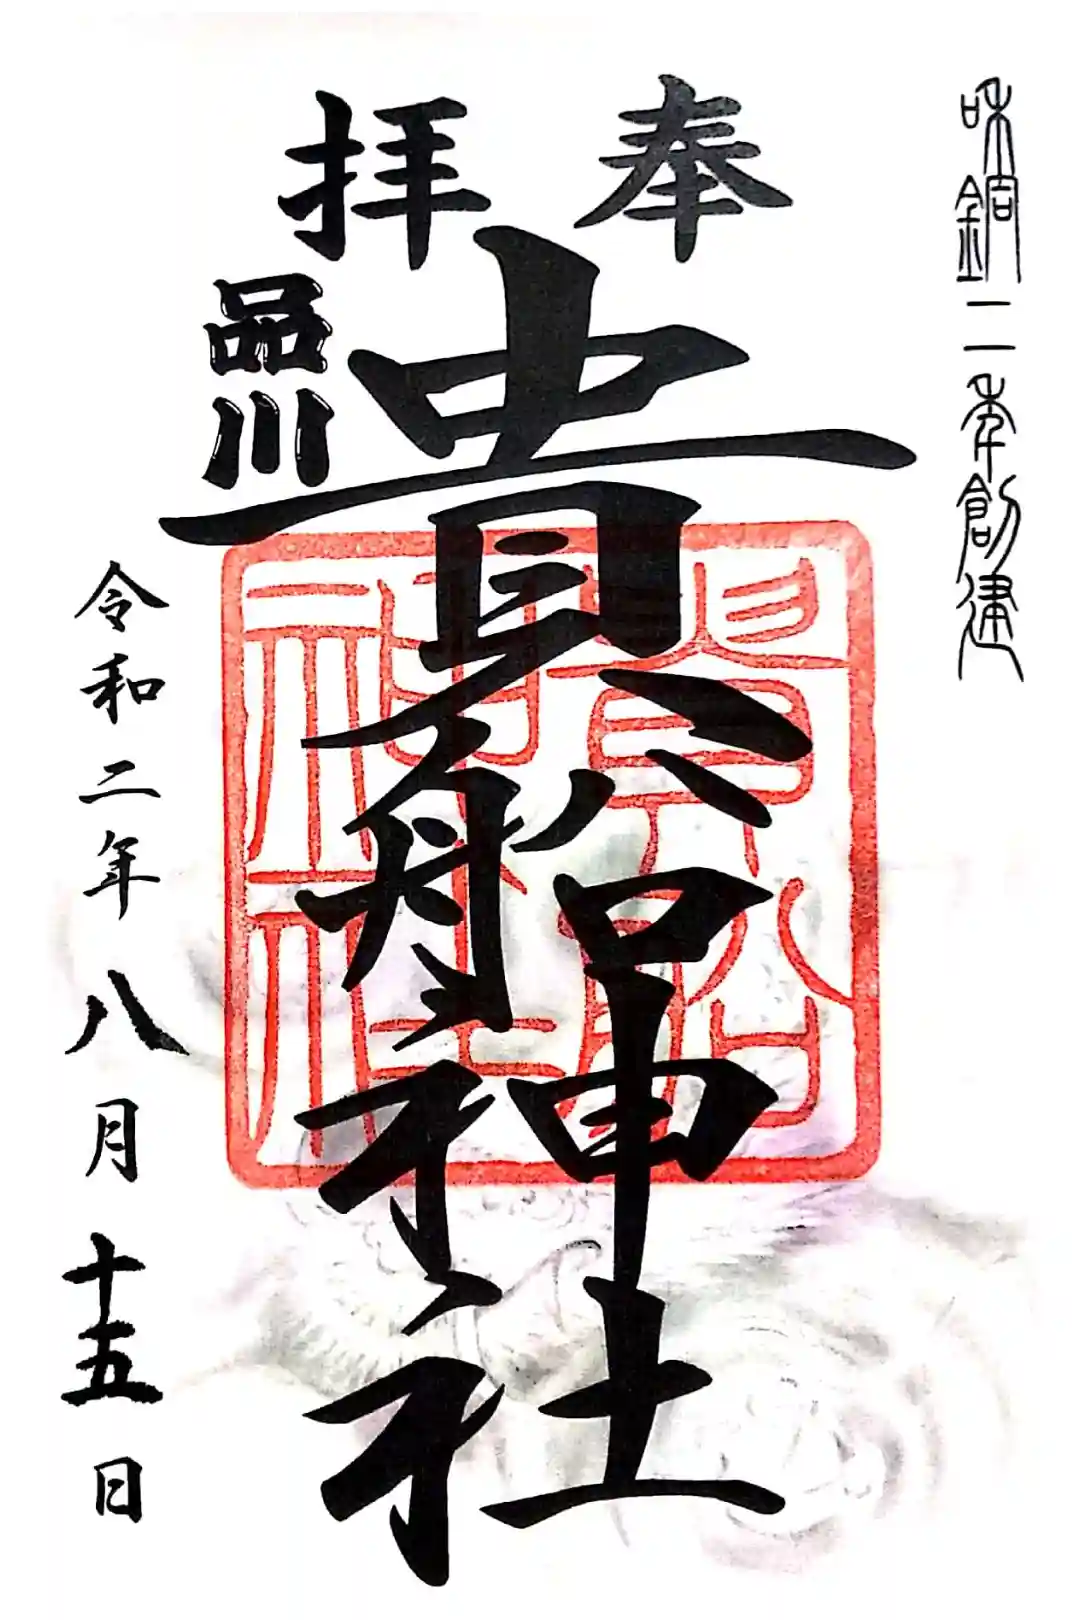 和銅二年創建
奉拝
貴船神社
品川
貴船
神社
令和二年八月十五日